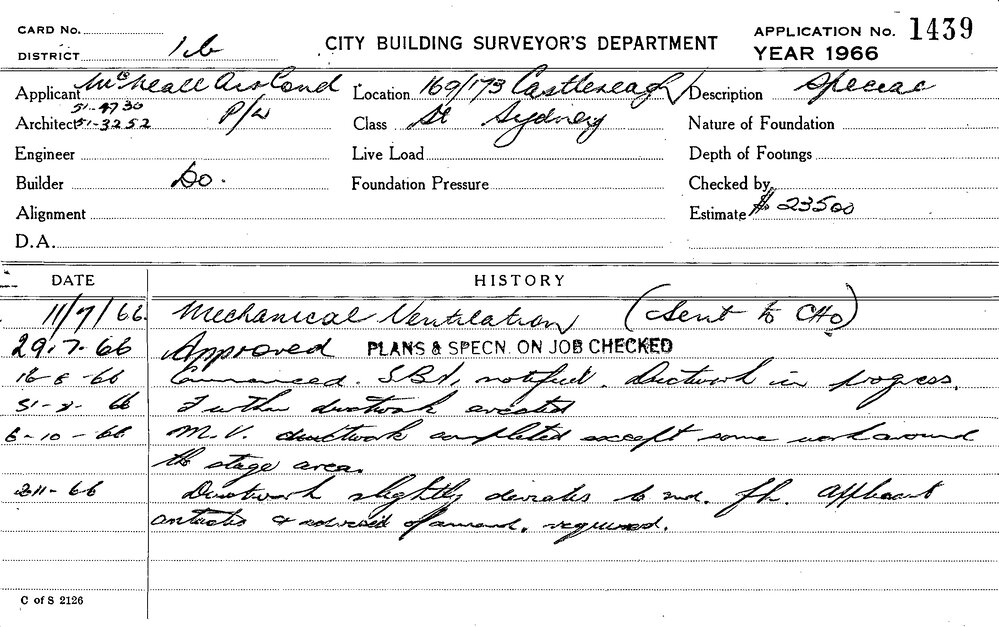 CARD No.
DISTRICT 1b
CITY BUILDING SURVEYOR'S DEPARTMENT
APPLICATION No. 1439
YEAR 1966
Applicant McNeall Air Cond
51-4730
Location 169/173 Castlereagh
Description Special
Architect 51-3252 P/W
Class St Sydney
Nature of Foundation
Engineer
Live Load
Depth of Footings
Builder Do.
Foundation Pressure
Checked by
Alignment
Estimate $ 23500
D.A.
DATE HISTORY
11/7/66. Mechanical Ventilation (Sent to CHO)
29.7.66 Approved PLANS & SPECN. ON JOB CHECKED
16-8-66 Commenced. notified. Ductwork in progress.
31-8-66 Further ductwork erected
6-10-66 M.V. ductwork completed except some work around
the stage area.
2-11-66 Ductwork slightly deviates to Applicant
contacted & advised required.
C of S 2126